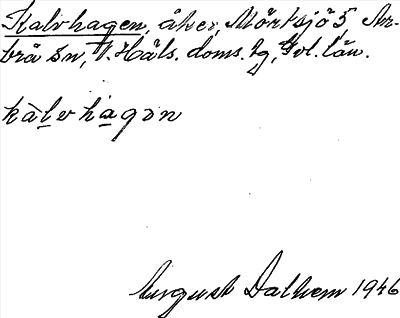 Kalvhagen, åker, Mörtsjö 5 Ar-
brå sn, V. Häls. doms. tg, Gvl. län.
kàlvhagən
August Dalhem 1946